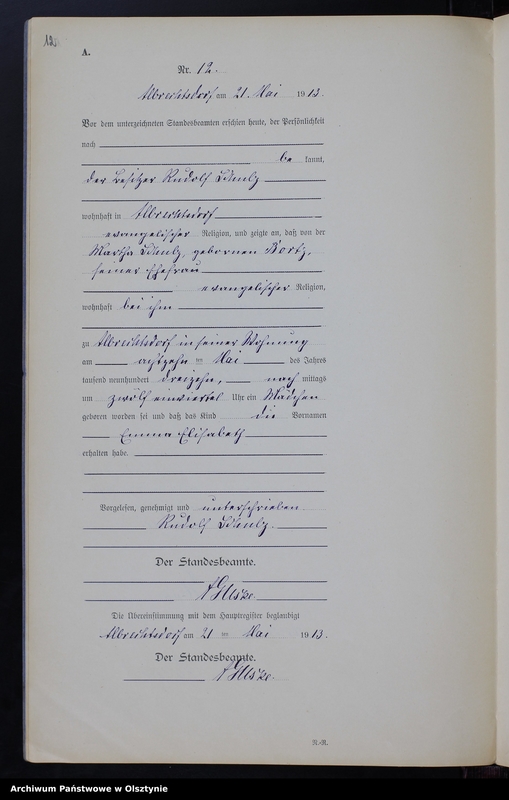 12.
A.
Nr. 12.
Albrechtsdorf am 21. Mai 1913.
Vor dem unterzeichneten Standesbeamten erschien heute, der Persönlichkeit
nach
be kannt,
der Besitzer Rudolf Schulz
wohnhaft in Albrechtsdorf
evangelischer Religion, und zeigte an, daß von der
Martha Schulz, gebornen
seiner Ehefrau
evangelischer Religion,
wohnhaft bei ihm
zu Albrechtsdorf in seiner Wohnung
am achtzehn ten Mai des Jahres
tausend neunhundert dreizehn, nach mittags
um zwölf einviertel Uhr ein Mädchen
geboren worden sei und daß das Kind die Vornamen
Emma Elisabeth
erhalten habe.
Vorgelesen, genehmigt und unterschrieben
Rudolf Schulz.
Der Standesbeamte.
Die Übereinstimmung mit dem Hauptregister beglaubigt
Albrechtsdorf am 21 ten Mai 1913.
Der Standesbeamte.
Archiwum Państwowe w Olsztynie